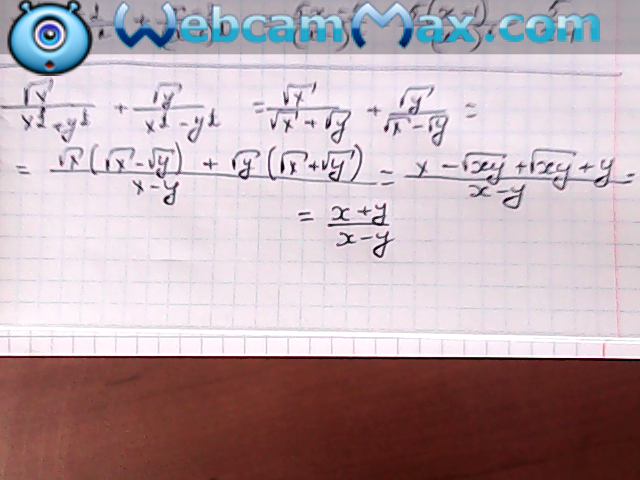 WebcamMax.com
√x / (x^½ + y^½) + √y / (x^½ - y^½) = √x / (√x + √y) + √y / (√x - √y) =
= (√x(√x - √y) + √y(√x + √y)) / (x - y) = (x - √xy + √xy + y) / (x - y) =
= (x + y) / (x - y)